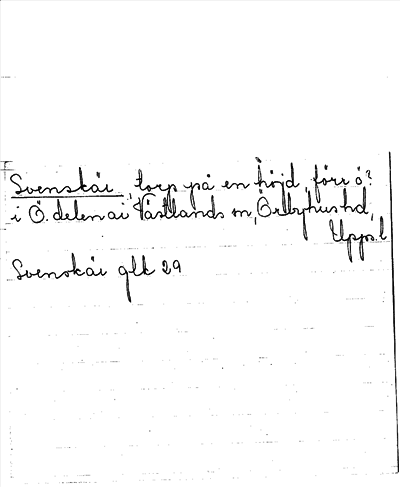 Svenskäi, torp på en höjd, förr ö?
i Ö. delen ai Västlands sn, Örbyhus hd,
Upps. l
Svenskäi glk 29